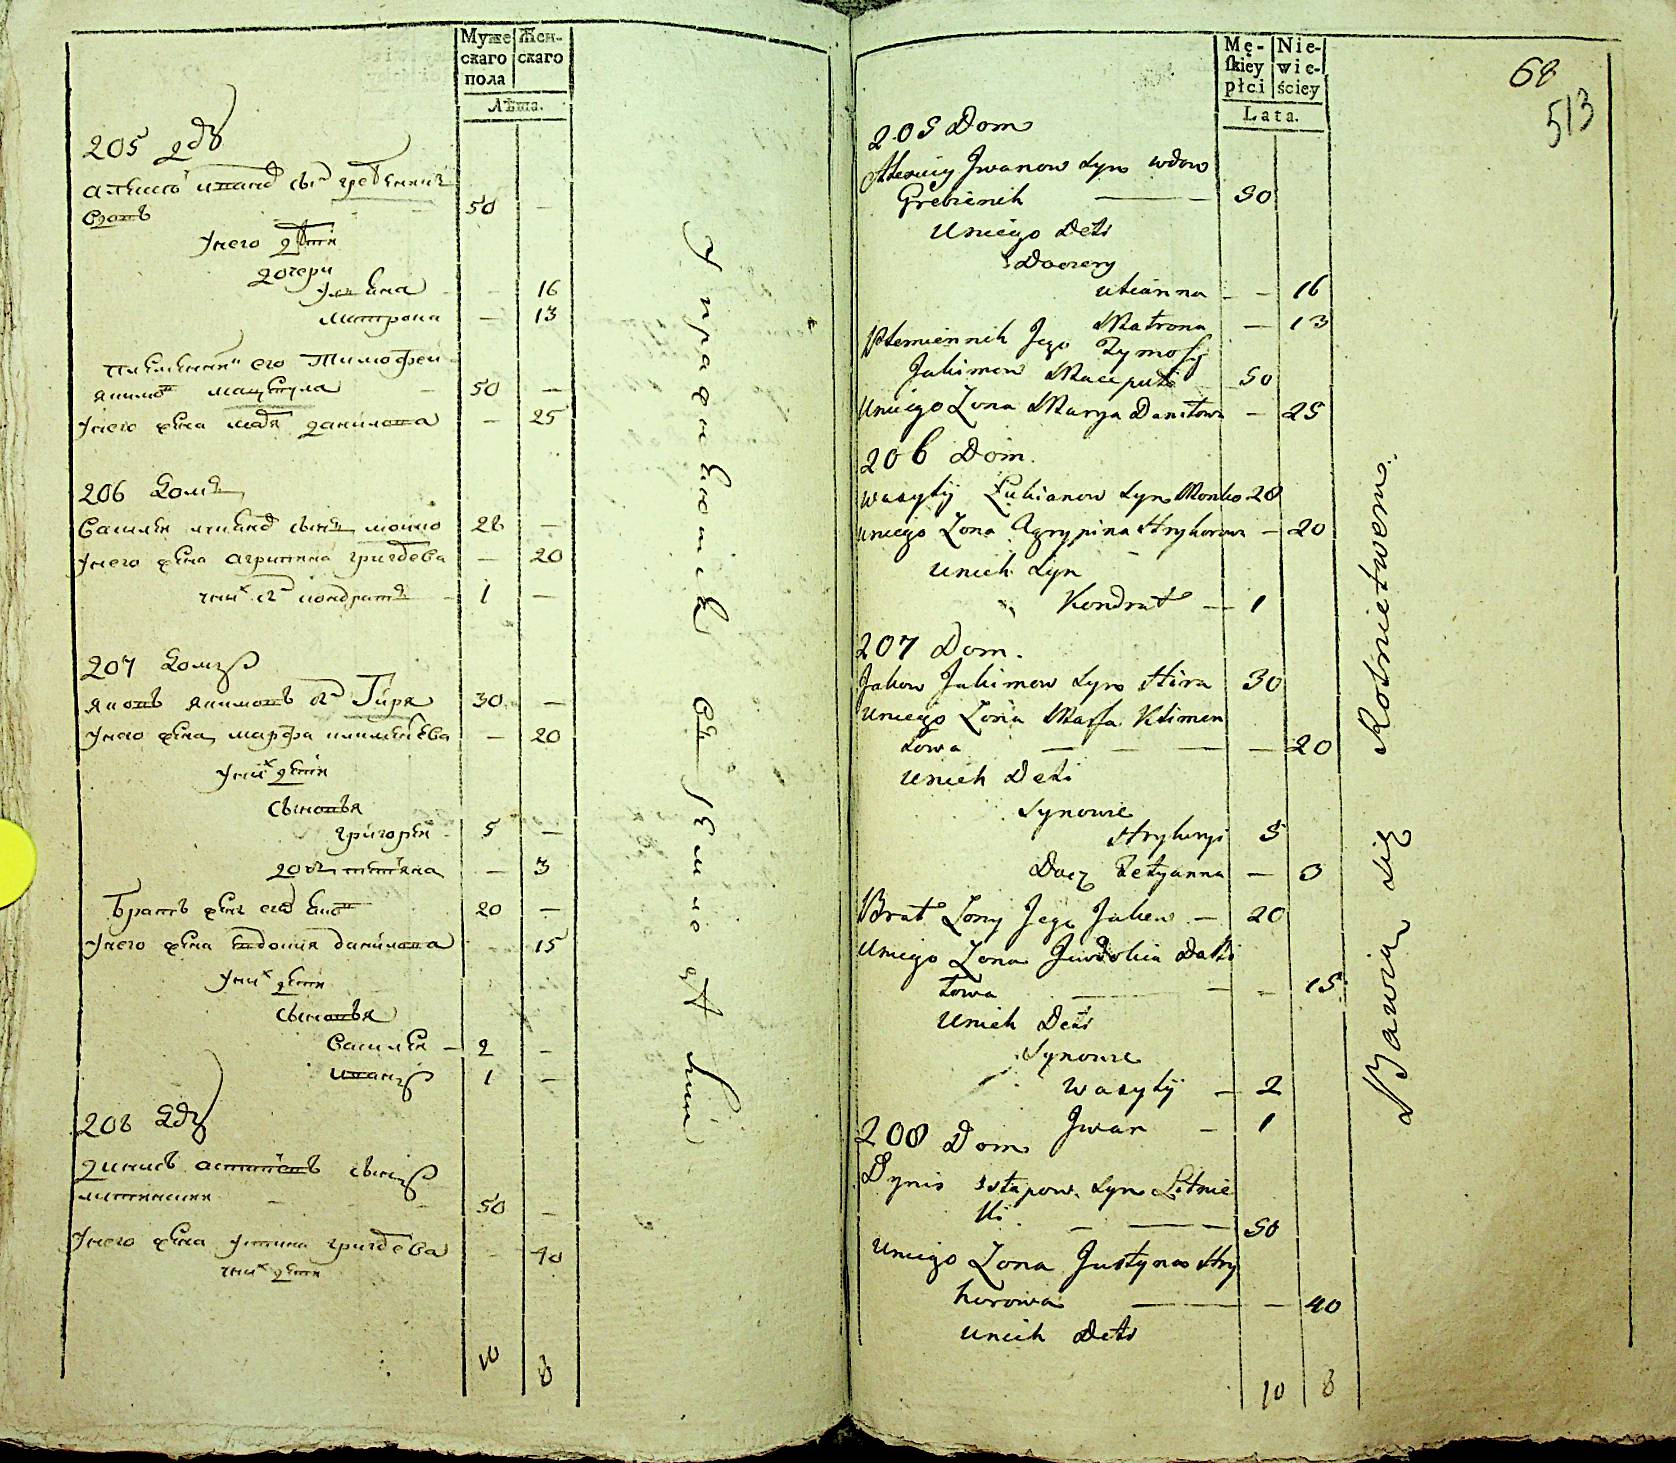 Муже
скаго
пола
Жен-
скаго
Лѣта.
205 дом
сынъ гребенник
вдовъ 50 —
у него дѣти
дочери
Ульяна — 16
Матрона — 13
племенник его Тимофей
якимов 50 —
у него жена марья данилова — 25
206 Домъ
Василий сынъ 28 —
у него жена агрипина григорьева — 20
у них сынъ кондратъ — 1 —
207 Домъ
яковъ якимовъ сын Гиря 30 —
у него жена марфа климентьева — 20
у них дѣти
сыновья
григорей 5 —
дочь татьяна — 3
братъ жены его 20 —
у него жена данилова 15
у них дети
сыновья
Василей — 2 —
иванъ 1 —
208 Домъ
динисъ остаповъ сынъ
50 —
у него жена устина григорьева — 40
у них дети
10 8
Упражняются въ земледѣлии
Mę-
skiey
płci
Nie-
wie-
ściey
Lata.
68
513
205 Dom
Alexiey Jwanow syn wdow
Grebienik — 50
Uniego Deti
Doczery
Ulianna — — 16
Matrona — 13
Plemiennik Jego Tymofiy
Jakimow 50
Uniego Zona Marya Daniłowa — 25
206 Dom.
Wasylij Łukianow syn Monko 28
Uniego Zona Agrypina Hryhorowa — 20
Unich syn
Kondrat — 1
207 Dom.
Jakow Jakimow syn Hira 30
Uniego Zona Marfa Klimen
towa — — — — 20
Unich Deti
Synowie
Hryhoryi 5
Docz Tetyanna — 3
Brat Zony Jego — 20
Uniego Zona Jewdokia Dani
łowa — — — 15
Unich Deti
Synowie
Wasylij — 2
Jwan — 1
208 Dom
Dynis Ostapow syn Litwie
ki — — 50
Uniego Zona Justyna Hry
horowa — — 40
Unich Deti
10 8
Bawią się Rolnictwem.